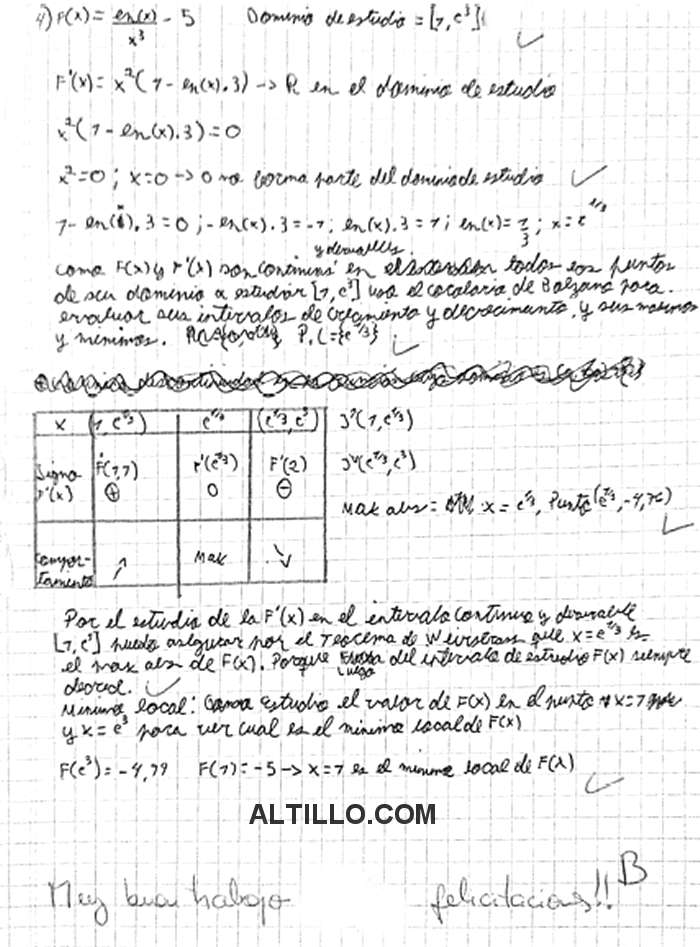 4) F(x) = en(x)/x³ - 5 Dominio de estudio = [1, e³]
F'(x) = x²(1 - en(x).3) -> R en el dominio de estudio
x²(1 - en(x).3) = 0
x² = 0 ; x = 0 -> 0 no forma parte del dominio de estudio
1 - en(x).3 = 0 ; - en(x).3 = -1 ; en(x).3 = 1 ; en(x) = 1/3 ; x = e^1/3
y derivables
Como F(x) y F'(x) son continuas en todos los puntos
de su dominio a estudiar [1, e³] uso el corolario de Bolzano para
evaluar sus intervalos de crecimiento y decrecimiento, y sus maximos
y minimos. P.C = {e^1/3}
x (1, e^1/3) e^1/3 (e^1/3, e³) I↗(1, e^1/3)
Signo F'(x) F'(1,1) ⊕ F'(e^1/3) 0 F'(2) ⊖ I↘(e^1/3, e³)
Max abs = x = e^1/3, Punto (e^1/3, -4,76)
Compor-tamiento ↗ Max ↘
Por el estudio de la F'(x) en el intervalo continuo y derivable
[1, e³] puedo asegurar por el Teorema de Weirstrass que x = e^1/3 es
el max abs de F(x). Porque luego del intervalo de estudio F(x) siempre
decrece.
Minimo local: Como estudio el valor de F(x) en el punto x = 1
y x = e³ para ver cual es el minimo local de F(x)
F(e³) = -4,99 F(1) = -5 -> x = 1 es el minimo local de F(x)
ALTILLO.COM
Muy buen trabajo felicitaciones!! B